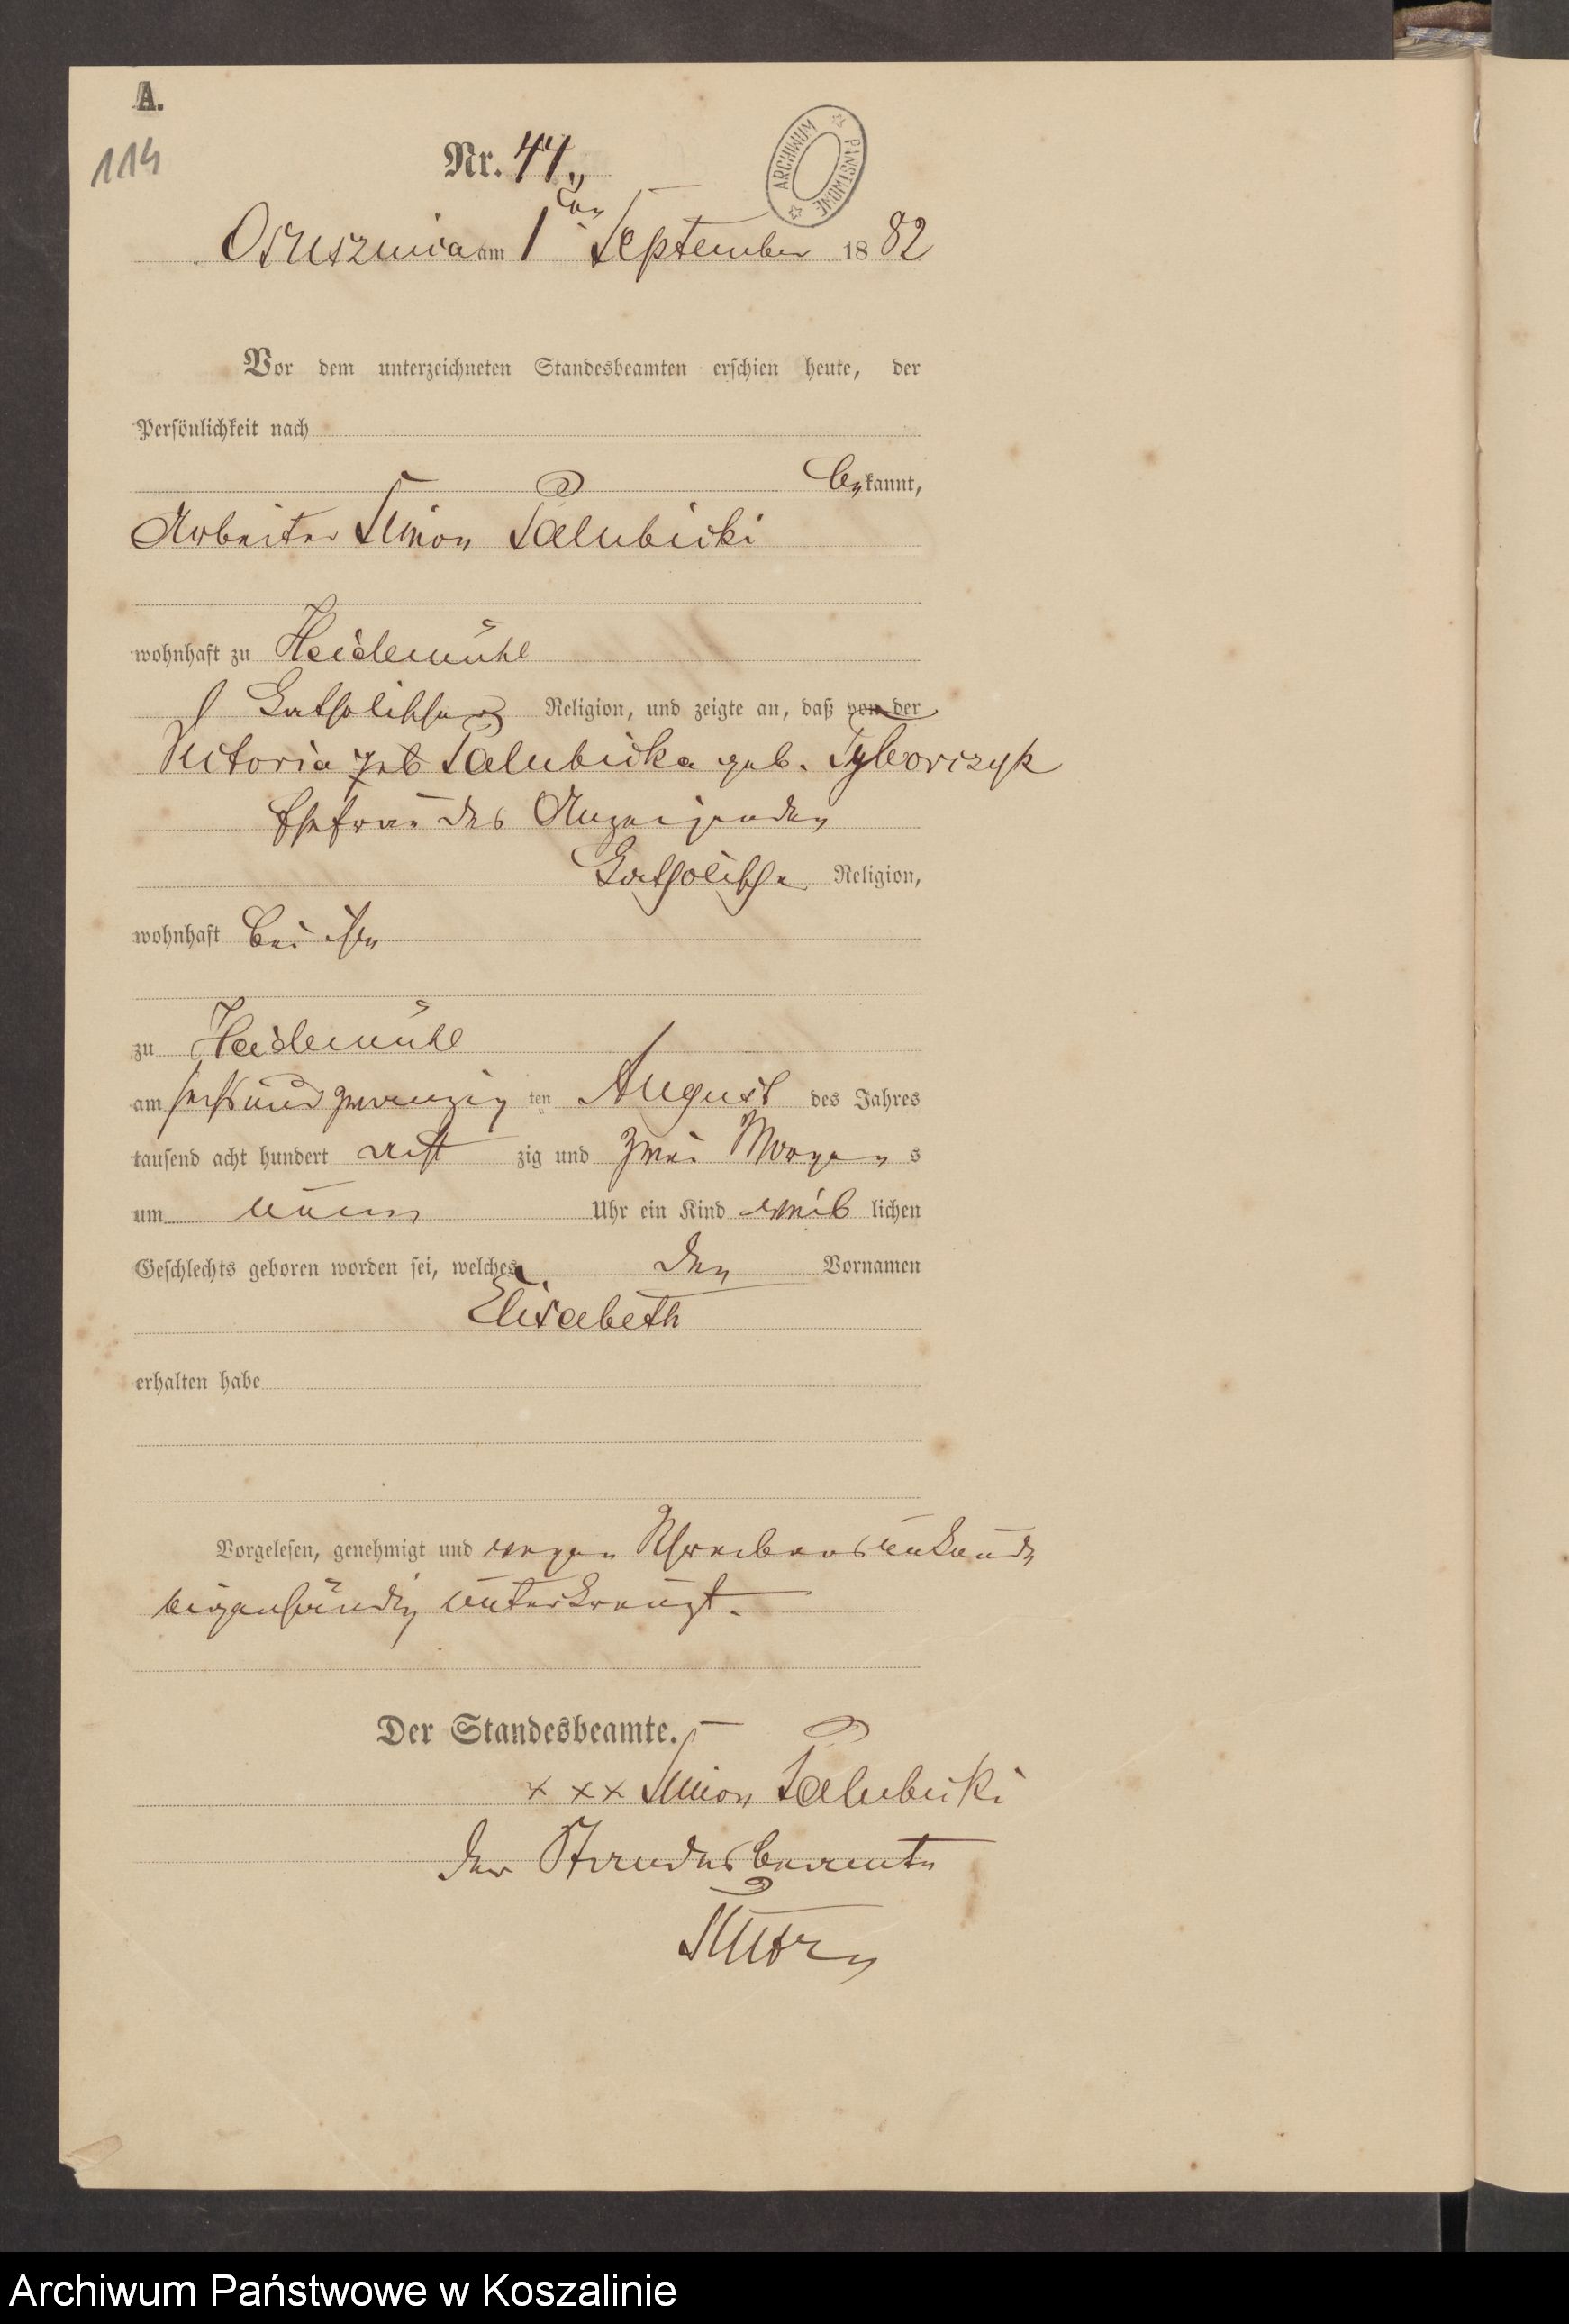 A.
114
Nr. 44.
ARCHIWUM PAŃSTWOWE
Osusznica am 1ten September 1882
Vor dem unterzeichneten Standesbeamten erschien heute, der
Persönlichkeit nach
bekannt,
Arbeiter Simon Palubicki
wohnhaft zu Heidemühl
katholischer Religion, und zeigte an, daß von der
Victoria geb Palubicka geb. Tyborczyk
Ehefrau des Anzeigenden
katholischer Religion,
wohnhaft bei ihm
zu Heidemühl
am sechsundzwanzig ten August des Jahres
tausend acht hundert acht zig und zwei Morgens
um neun Uhr ein Kind weiblichen
Geschlechts geboren worden sei, welches den Vornamen
Elisabeth
erhalten habe
Vorgelesen, genehmigt und wegen Schreibensunkunde
eigenhändig unterkreuzt.
Der Standesbeamte.
xxx Simon Palubicki
der Standesbeamte
Archiwum Państwowe w Koszalinie